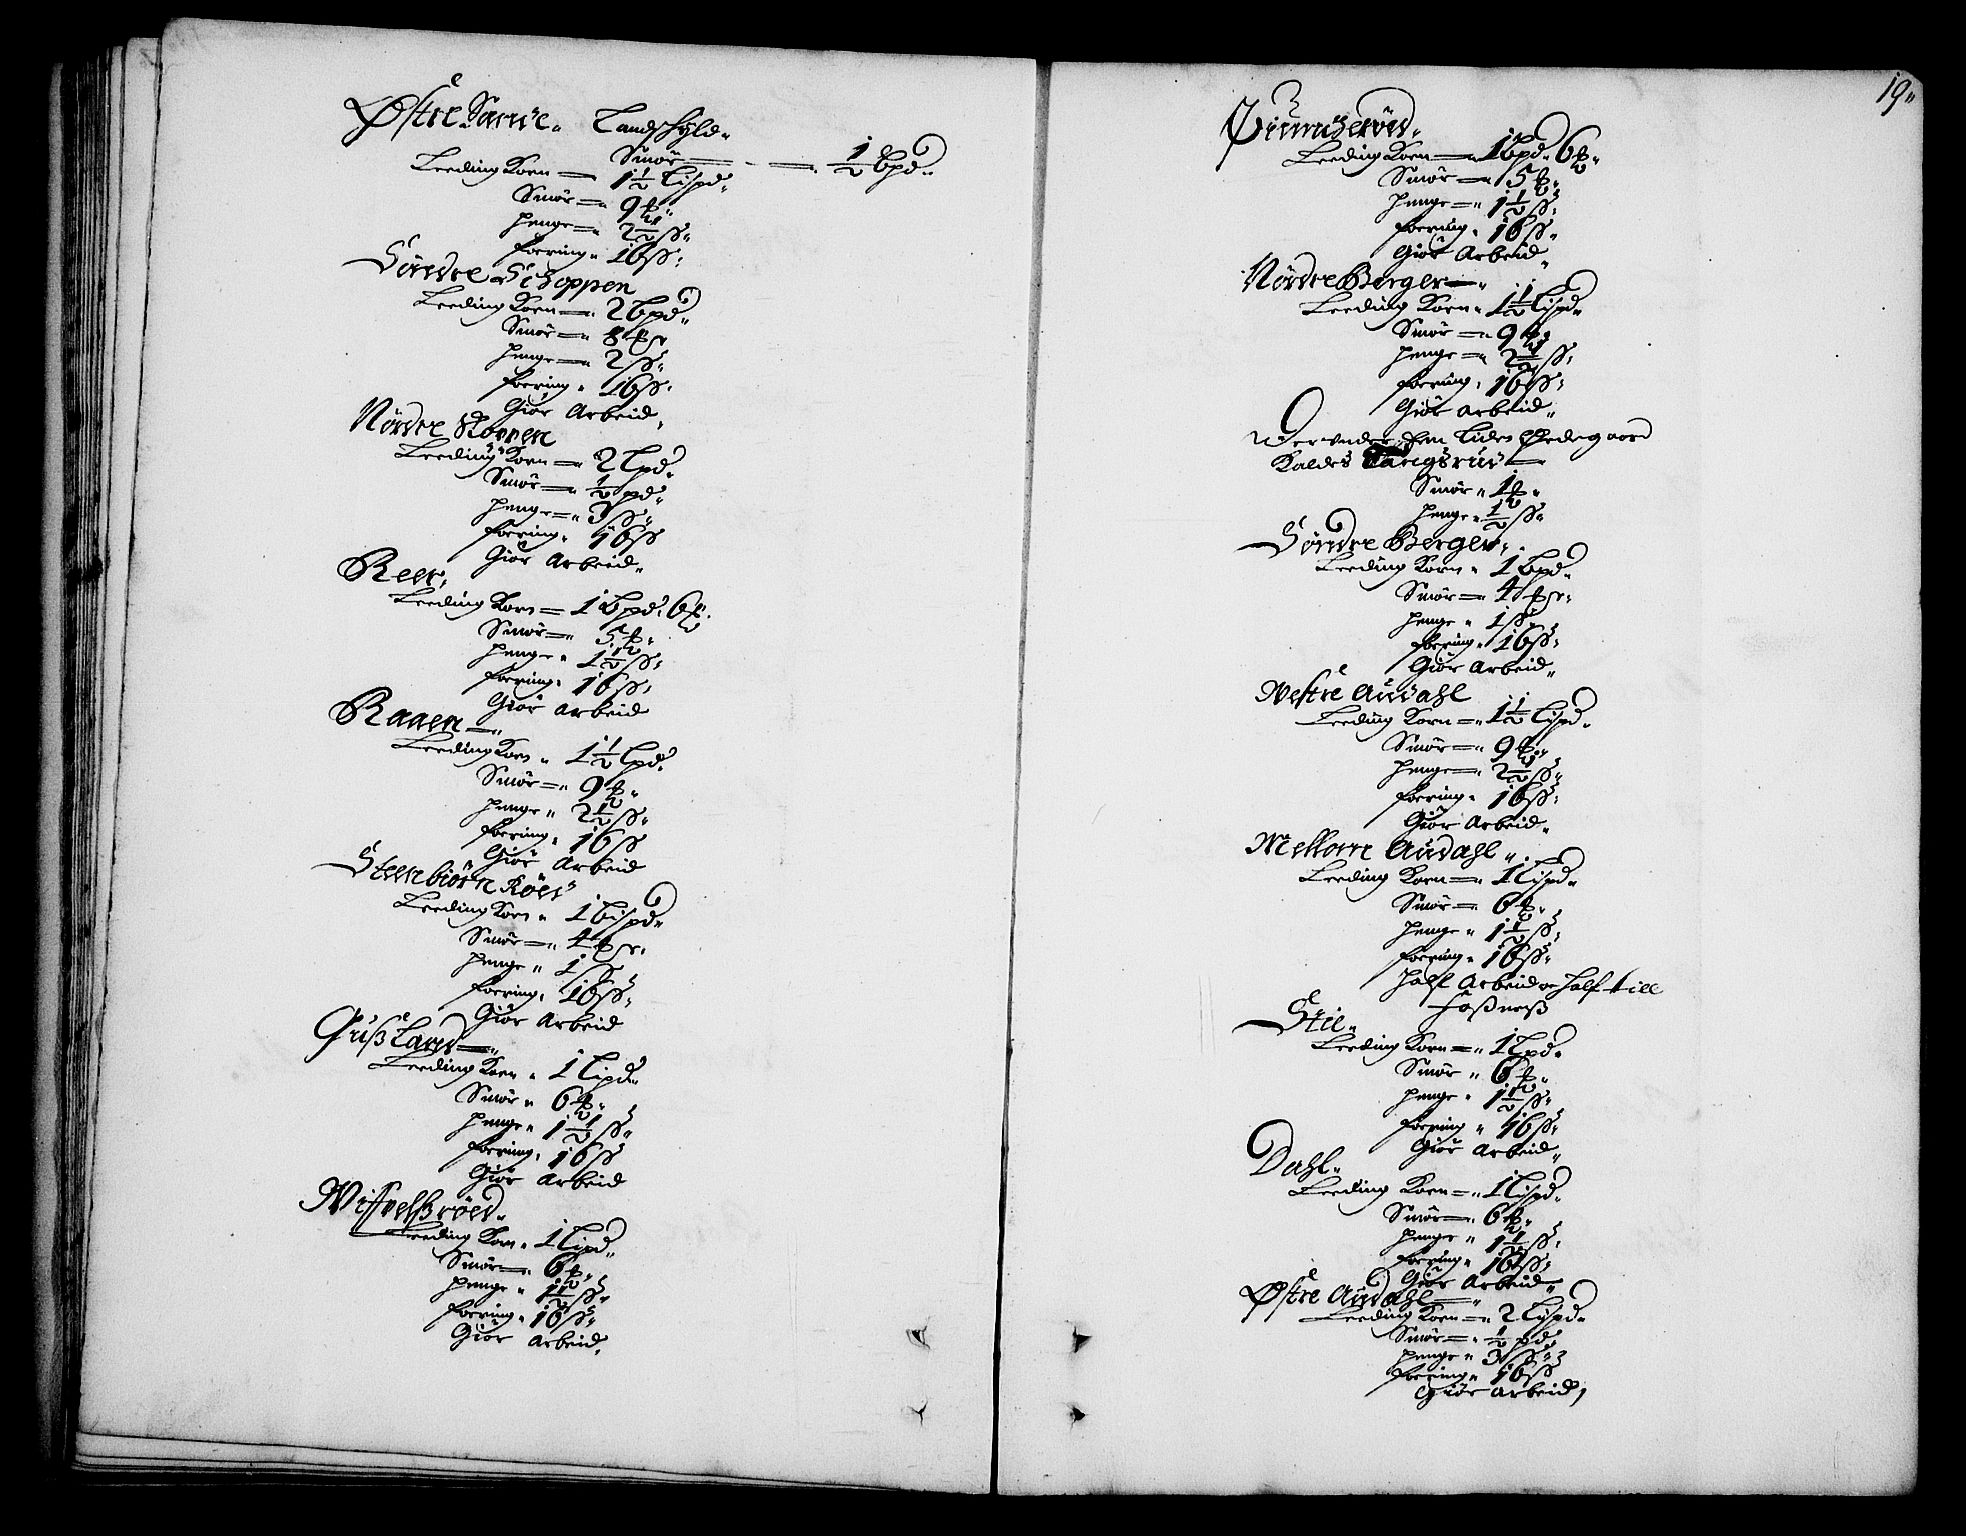 Østre Sande. Landschyld.
Smör — — ½ Bpd.
Leeding Korn — 1½ Lispd.
Smör — 9 ℔.
Penge — 2½ ss.
foering. 16 ss.
Söndre Schoppen
Leeding Korn — 2 Bpd.
Smör — 8 ℔r
Penge — 2 ss.
foering. 16 ss.
Giör Arbeid.
Nordre Skoppen
Leeding Korn — 2 Lpd.
Smör — ½ pd.
Penge — 3 ss.
foering. 16 ss
Giör Arbeid.
Reer.
Leeding Korn — 1 Bpd. 6 ℔.
Smör — 5 ℔.
Penge. 1½ ss.
foering. 16 ss.
Giör Arbeid
Raaen —
Leeding Korn. 1½ Lpd.
Smör — 9 ℔.
Penge. 2½ ss.
foering. 16 ss
Giör Arbeid
Steenbiörn Röed
Leeding Korn. 1 Bispd.
Smör — 4 ℔r.
Penge. 1 ss
foering. 16 ss.
Giör Arbeid
Gußland —
Leeding Korn. 1 Lipd.
Smör. 6 ℔.
Penge. 1½ ss.
foering. 16 ss
Giör Arbeid
Wisselßröed.
Leeding Korn. 1 Lipd.
Smör — 6 ℔.
Penge. 1½ ss.
foering. 16 ss.
Giör Arbeid.
19.
Leeding Korn — 1 Bpd. 6 ℔.
Smör — 5 ℔.
Penge — 1½ ss.
foering. 16 ss.
Giör Arbeid.
Nordre Berger —
Leeding Korn. 1½ Lispd.
Smör — 9 ℔.
Penge — 2½ ss.
foering. 16 ss.
Giör Arbeid.
Der under Een Liden Ødegaard
Kaldes
Smör. 1 ℔.
Penge. ½ ss.
Söndre Berger.
Leeding Korn. 1 Bpd.
Smör — 4 ℔r.
Penge. 1 ss.
foering. 16 ss.
Giör Arbeid.
Westre Audahl
Leeding Korn — 1½ Lispd.
Smör — 9 ℔.
Penge — 2½ ss.
foering. 16 ss.
Giör Arbeid.
Mellom Audahl.
Leeding Korn — 1 Lispd.
Smör — 6 ℔.
Penge. 1½ ss.
foering. 16 ss.
half Arbeid oc half till
Foßneß
Stie.
Leeding Korn — 1 Lpd.
Smör. 6 ℔.
Penge. 1½ ss.
foering. 16 ss.
Giör Arbeid.
Dahl.
Leeding Korn — 1 Lispd.
Smör — 6 ℔.
Penge. 1½ ss.
foering. 16 ss.
Giör Arbeid.
Østre Audahl —
Leeding Korn — 2 Lispd.
Smör — ½ pd.
Penge. 3 ss.
foering. 16 ss
Giör Arbeid,